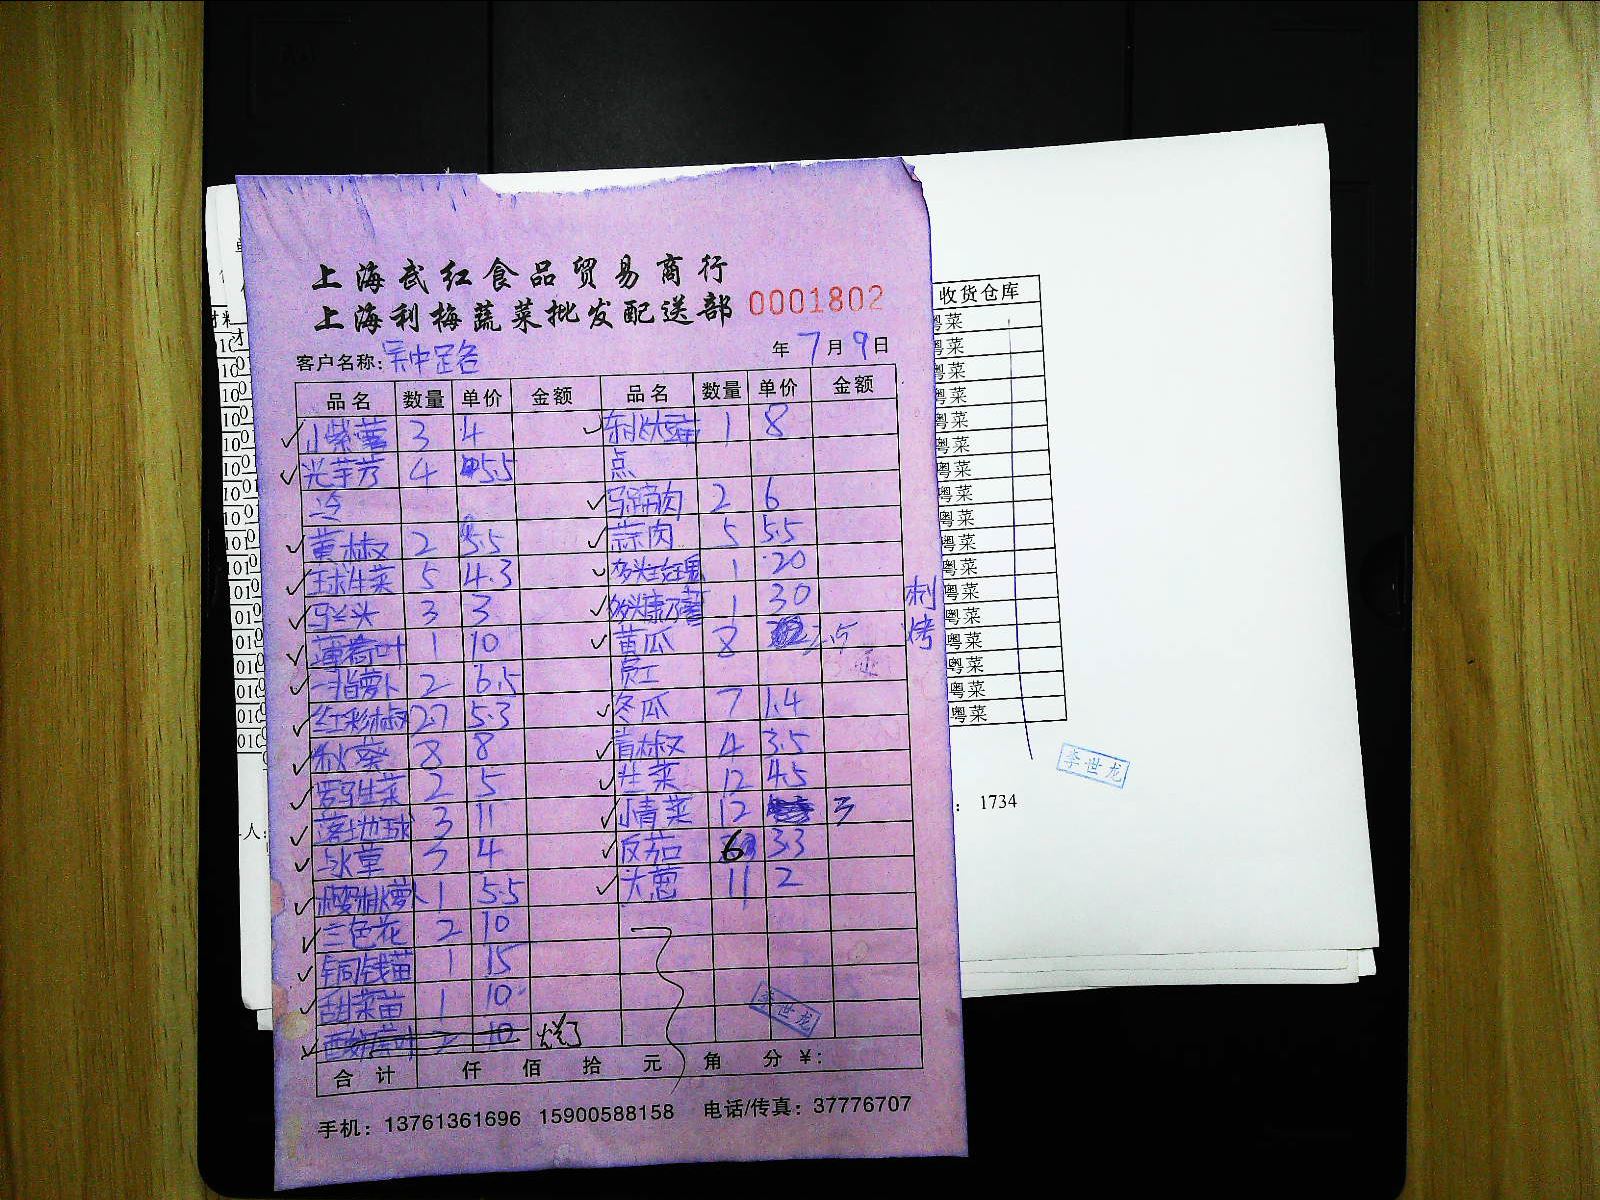 上海武红食品贸易商行
上海利梅蔬菜批发配送部 0001802
客户名称: 吴中路 年 7 月 9 日
品名 数量 单价 金额 品名 数量 单价 金额
小紫薯 3 4 1 8
光芋艿 4 5.5 点
冷 马蹄肉 2 6
黄椒 2 5.5 蒜肉 5 5.5
球生菜 5 4.3 1 20
马兰头 3 3 1 30 制
薄荷叶 1 10 黄瓜 8 2.5 烤
手指萝卜 2 6.5 员工
红彩椒 2.7 5.3 冬瓜 7 1.4
秋葵 8 8 青椒 4 3.5
罗马生菜 2 5 生菜 12 4.5
落地球 3 11 小青菜 12 3
3 4 反茄 6 3.3
樱桃萝卜 1 5.5 大葱 11 2
三色花 2 10
铜钱苗 1 15
甜菜苗 1 10
2 10 烂了
李世龙
合计 仟 佰 拾 元 角 分 ¥:
手机: 13761361696 15900588158 电话/传真: 37776707
收货仓库
粤菜
粤菜
粤菜
粤菜
粤菜
粤菜
粤菜
粤菜
粤菜
粤菜
粤菜
粤菜
粤菜
粤菜
粤菜
粤菜
粤菜
李世龙
: 1734
人: